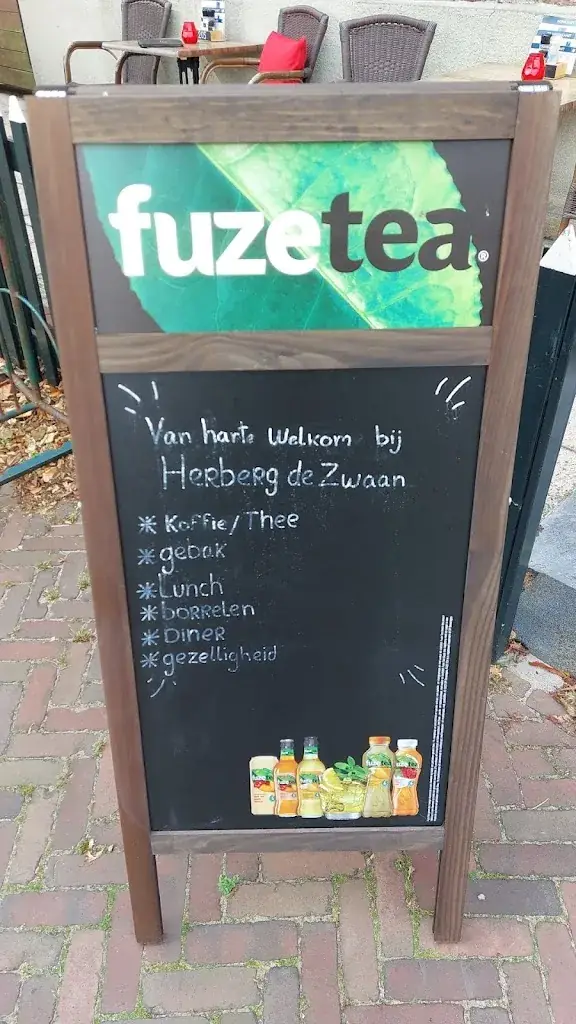 fuzetea®
Van harte Welkom bij
Herberg de Zwaan
* Koffie/Thee
* gebak
* Lunch
* borrelen
* Diner
* gezelligheid